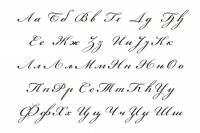 Аа Бб Вв Гг Дд Ђђ
Ее Жж Зз Ии Јј Кк
Лл Љљ Мм Нн Њњ Оо
Пп Рр Сс Тт Ћћ Уу
Фф Хх Цц Чч Џџ Шш